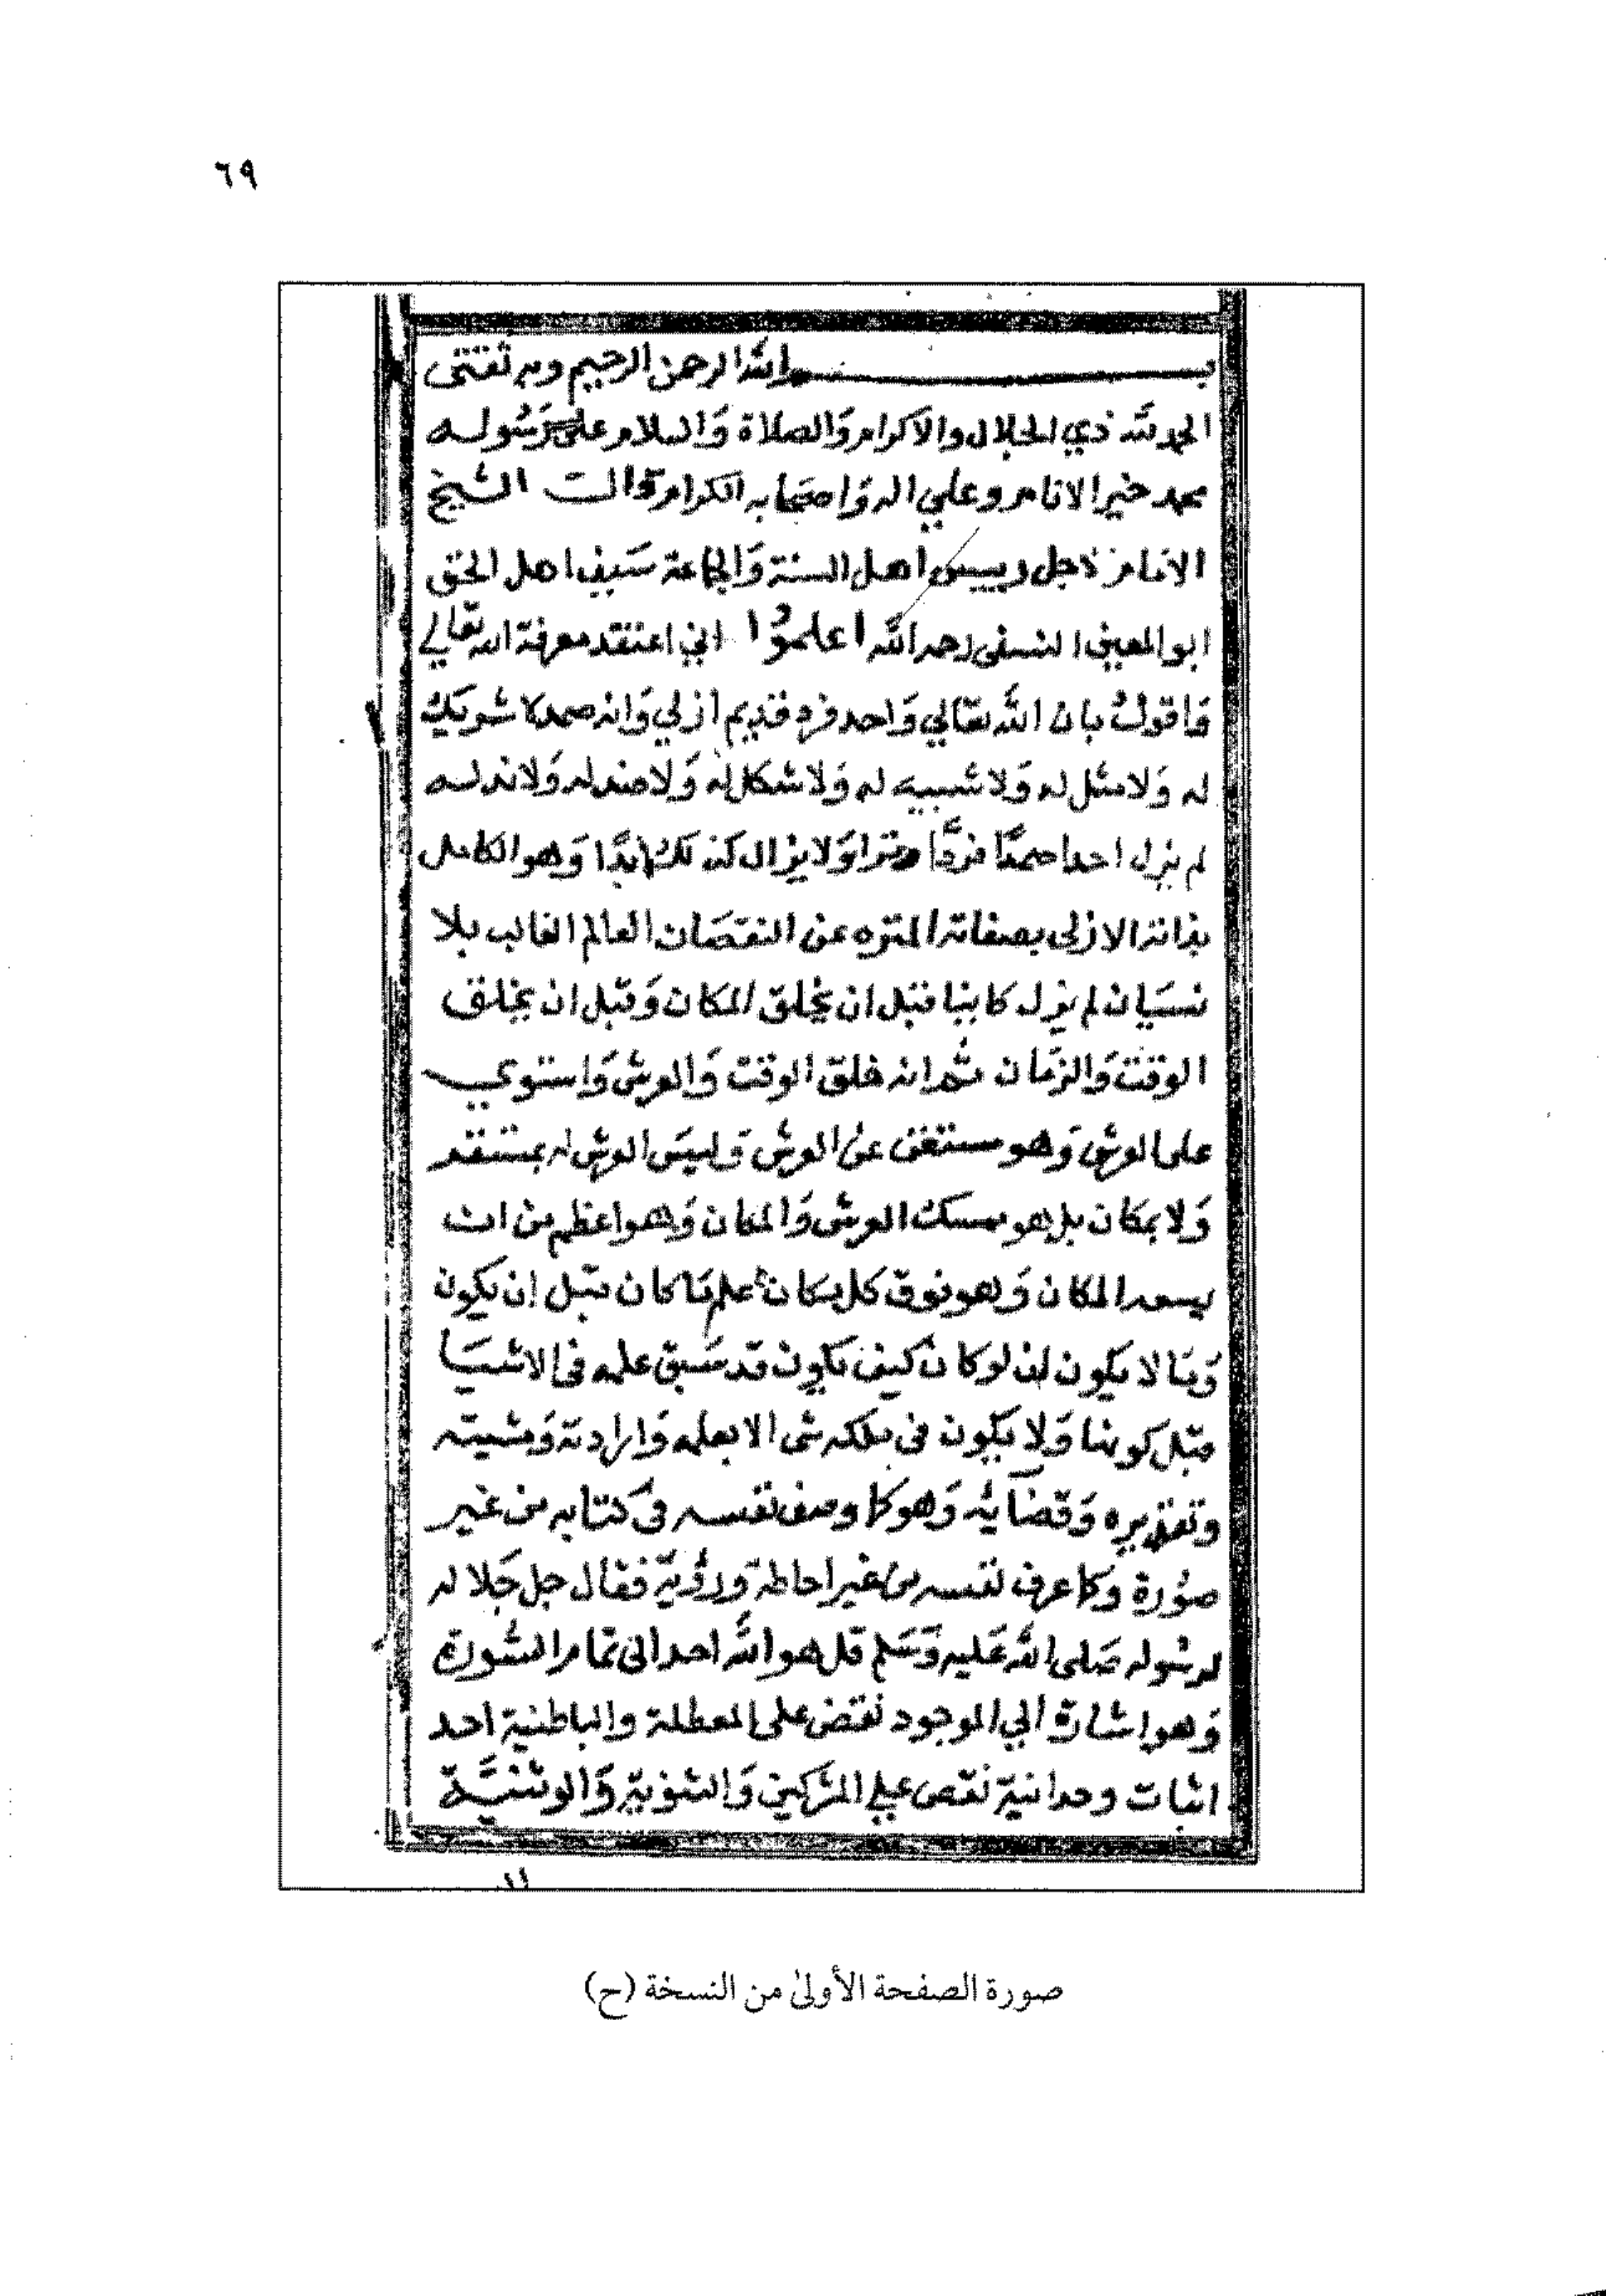 ٦٩
بسم الله الرحمن الرحيم وبه ثقتي
الحمد لله ذي الجلال والاكرام وَالصلاة وَالسلام على رَسُوله
محمد خير الانام وعلي اله وَاصحابه الكرام قال الشيخ
الامام الاجل رييس اهل السنة وَالجماعة سَيف اهل الحق
ابو المعين النسفى رحمه الله اعلموُا اني اعتقد معرفة الله تعَالي
وَاقولُ بان الله تعَالي وَاحد فرد قديم أزلي وَانه صمد لا شريك
له وَلا مثل له وَلا شبيه له وَلا شكل له وَلا ضد له وَلا ند له
لم يزل احدا صمدًا فردًا وترا وَلا يزال كذلك ابدًا وَهو الكامل
بذاته الازلى بصفاته المنزه عن النقصَان العَالم الغالب بلا
نسيَان لم يزل كاينا قبل ان يخلق المكان وَقبل ان يخلق
الوقت وَالزمَان ثم انه خلق الوقت وَالعرش وَاستوي
على العرش وَهو مستغن عن العرش وَليسَ العرش له بمستقر
وَلا بمكان بل هو ممسك العرش وَالمكان وَهو اعظم من ان
يسعه المكان وَهو فوق كل مكان علم مَا كان قبل إن يكون
وَمَا لا يكون ان لو كان كيف يكون قد سَبق علمه فى الاشيَا
قبل كونها وَلا يكون في ملكه شى الا بعلمه وَارادته وَمشيته
وتقديره وَقضَايه وَهو كما وصف نفسه في كتابه من غير
صوُرة وكما عرف نفسه من غير احاطة ورؤية فقال جل جَلاله
لرسُوله صَلى الله عَليه وَسَلم قل هو الله احد الى تمام السُورة
وَهو اشارة الي الموجود نقض على المعطلة والباطنية احد
اثبات وحدانية نقض علي المشركين وَالثنوية وَالوثنيَّة
صورة الصفحة الأولىٰ من النسخة (ح)